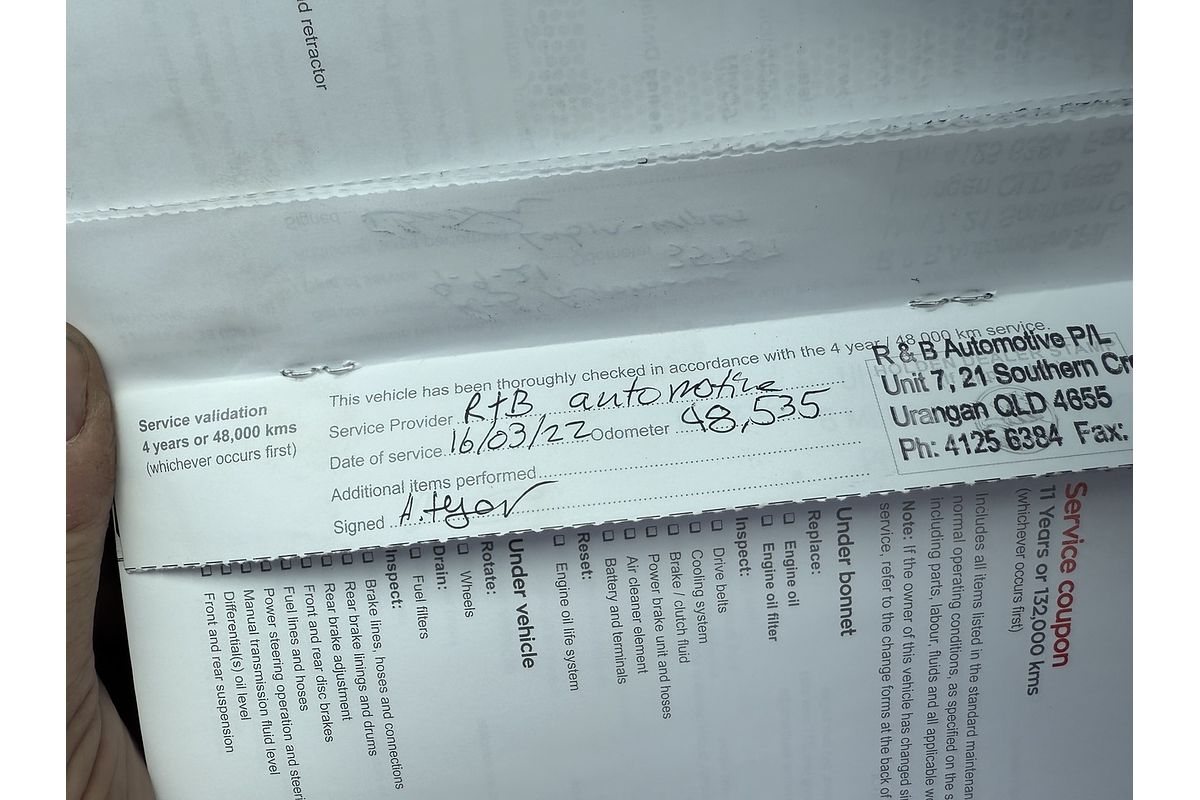 d retractor
Service validation
4 years or 48,000 kms
(whichever occurs first)
This vehicle has been thoroughly checked in accordance with the 4 year / 48,000 km service.
Service Provider R+B automotive
Date of service 16/03/22 Odometer 48,535
Additional items performed
Signed
R & B Automotive P/L
Unit 7, 21 Southern Cr
Urangan QLD 4655
Ph: 4125 6384 Fax:
Service coupon
11 Years or 132,000 kms
(whichever occurs first)
Includes all items listed in the standard maintenan
normal operating conditions, as specified on the s
including parts, labour, fluids and all applicable w
Note: If the owner of this vehicle has changed si
service, refer to the change forms at the back of
Under bonnet
Replace:
Engine oil
Engine oil filter
Inspect:
Drive belts
Cooling system
Brake / clutch fluid
Power brake unit and hoses
Air cleaner element
Battery and terminals
Reset:
Engine oil life system
Under vehicle
Rotate:
Wheels
Drain:
Fuel filters
Inspect:
Brake lines, hoses and connections
Rear brake linings and drums
Rear brake adjustment
Front and rear disc brakes
Fuel lines and hoses
Power steering operation and steeri
Manual transmission fluid level
Differential(s) oil level
Front and rear suspension